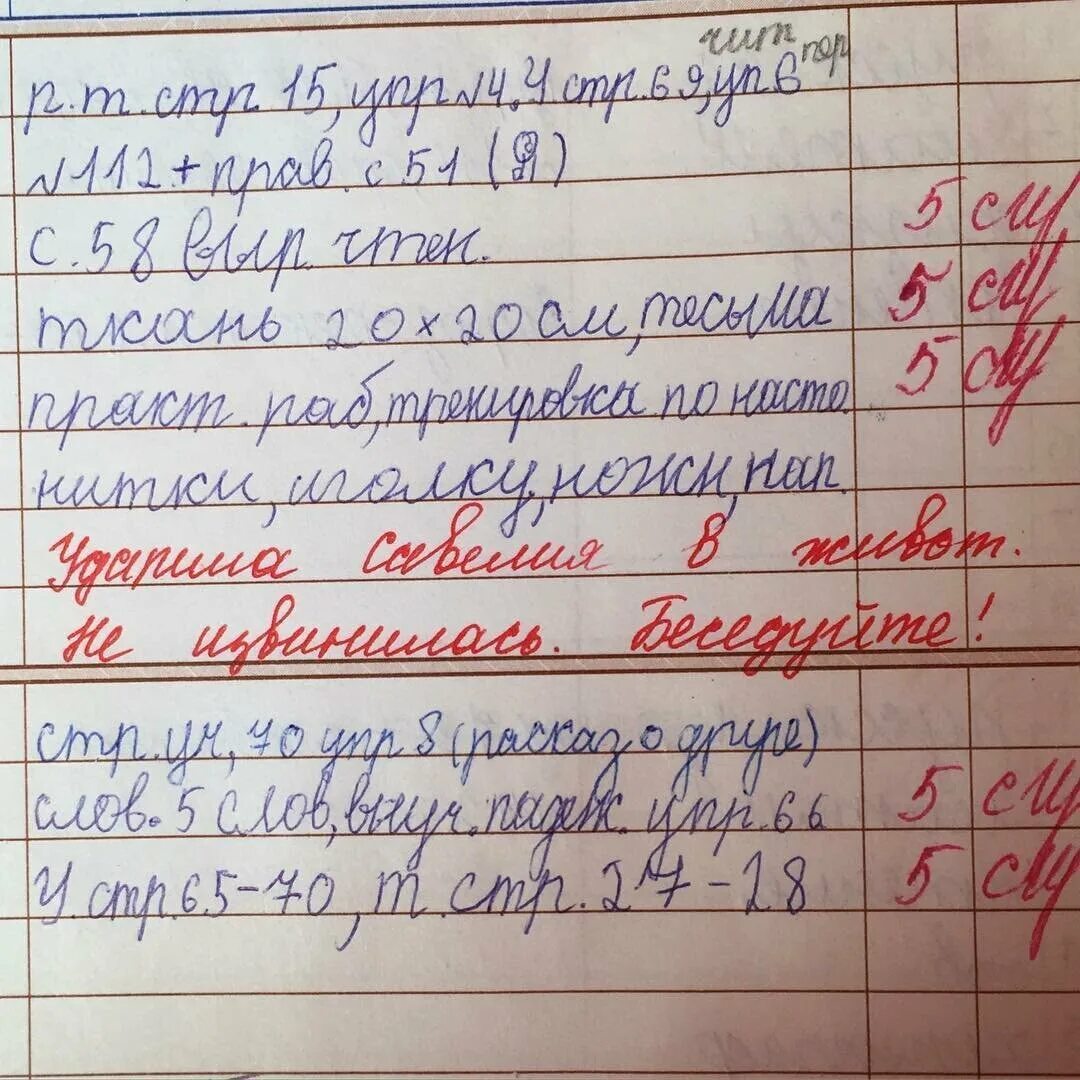 чит пер
р.т.стр. 15, упр №4. У стр.69, уп.6
№112+прав. с 51 (Я)
с.58 выр. чтен. 5
ткань 20×20 см, тесьма 5
практ. раб, тренировка по насто. 5
нитки, иголку, ножн, нап.
Ударила Савелия в живот.
Не извинилась. Беседуйте!
стр.уч, 70 упр 8 (расказ о друге)
слов. 5 слов, выуч. падеж. упр. 66 5
У.стр.65-70, т.стр. 27-28 5